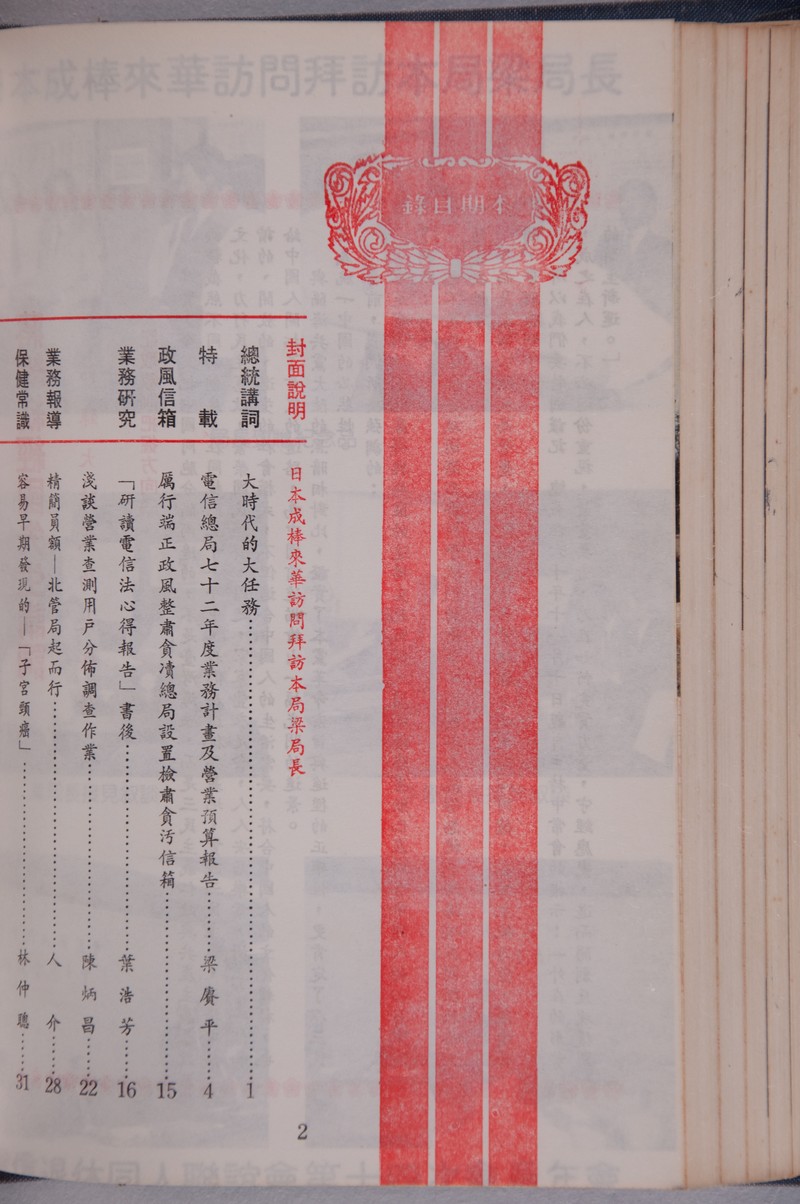 本期目錄
封面說明 日本成棒來華訪問拜訪本局梁局長
總統講詞 大時代的大任務⋯⋯⋯⋯⋯⋯⋯⋯⋯⋯⋯⋯ 1
特載 電信總局七十二年度業務計畫及營業預算報告⋯⋯梁賡平⋯⋯ 4
政風信箱 厲行端正政風整肅貪凟總局設置檢肅貪汚信箱⋯⋯⋯⋯⋯⋯ 15
業務硏究 「硏讀電信法心得報告」書後⋯⋯⋯⋯⋯⋯葉浩芳⋯⋯ 16
淺談營業查測用戶分佈調查作業⋯⋯⋯⋯⋯⋯陳炳昌⋯⋯ 22
業務報導 精簡員額—北管局起而行⋯⋯⋯⋯⋯⋯⋯⋯人介⋯⋯ 28
保健常識 容易早期發現的—「子宮頸癌」⋯⋯⋯⋯⋯⋯林仲聰⋯⋯ 31
2